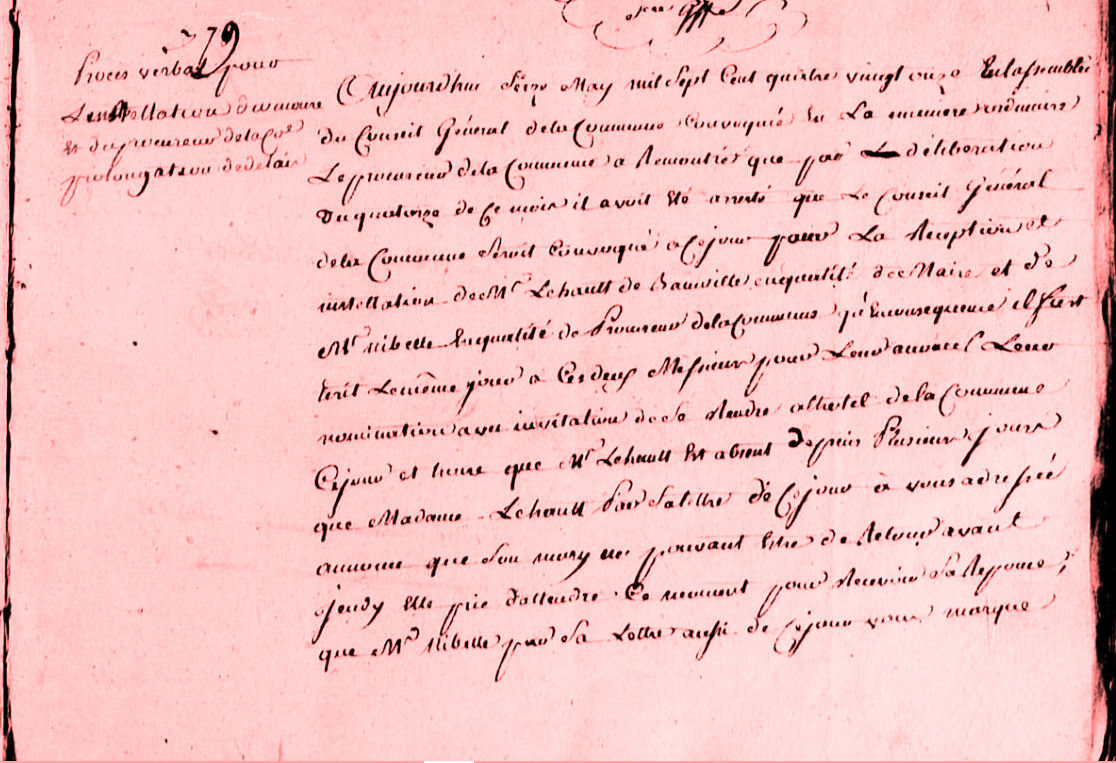 79
Proces verbal pour
L'enstellation du maire
et du procureur de la Cne
prolongation de delai
Aujourdhui Seize May mil Sept Cent quatre vingt onze En lassemblée
du Conseil Général de la Commune Convoquée En La maniere ordinaire
Le procureur de la Commune a Remontré que par La déliberation
Du quatorze de Ce mois il avoit Eté arresté que Le Conseil Général
de la Commune Seroit Convoqué a Ce jour pour La Reception et
installation de Mr Lehault de Bainville en qualité de Maire et de
Mr Nibelle En qualité de Procureur de la Commune qu'En consequence il fut
Ecrit Le même jour a Ces deux Messieurs pour Leur annoncer Leur
nomination avec invitation de Se Rendre a lhotel de la Commune
Ce jour et heure que Mr Lehault Est absent Depuis Plusieurs jours
que Madame Lehault Par Sa lettre de Ce jour a vous adressée
annonce que Son mary ne pouvant Etre de Retour avant
jeudy Elle prie d'attendre Ce moment pour Recevoir Sa Reponse ;
que Mr Nibelle par Sa Lettre aussi de Ce jour vous marque